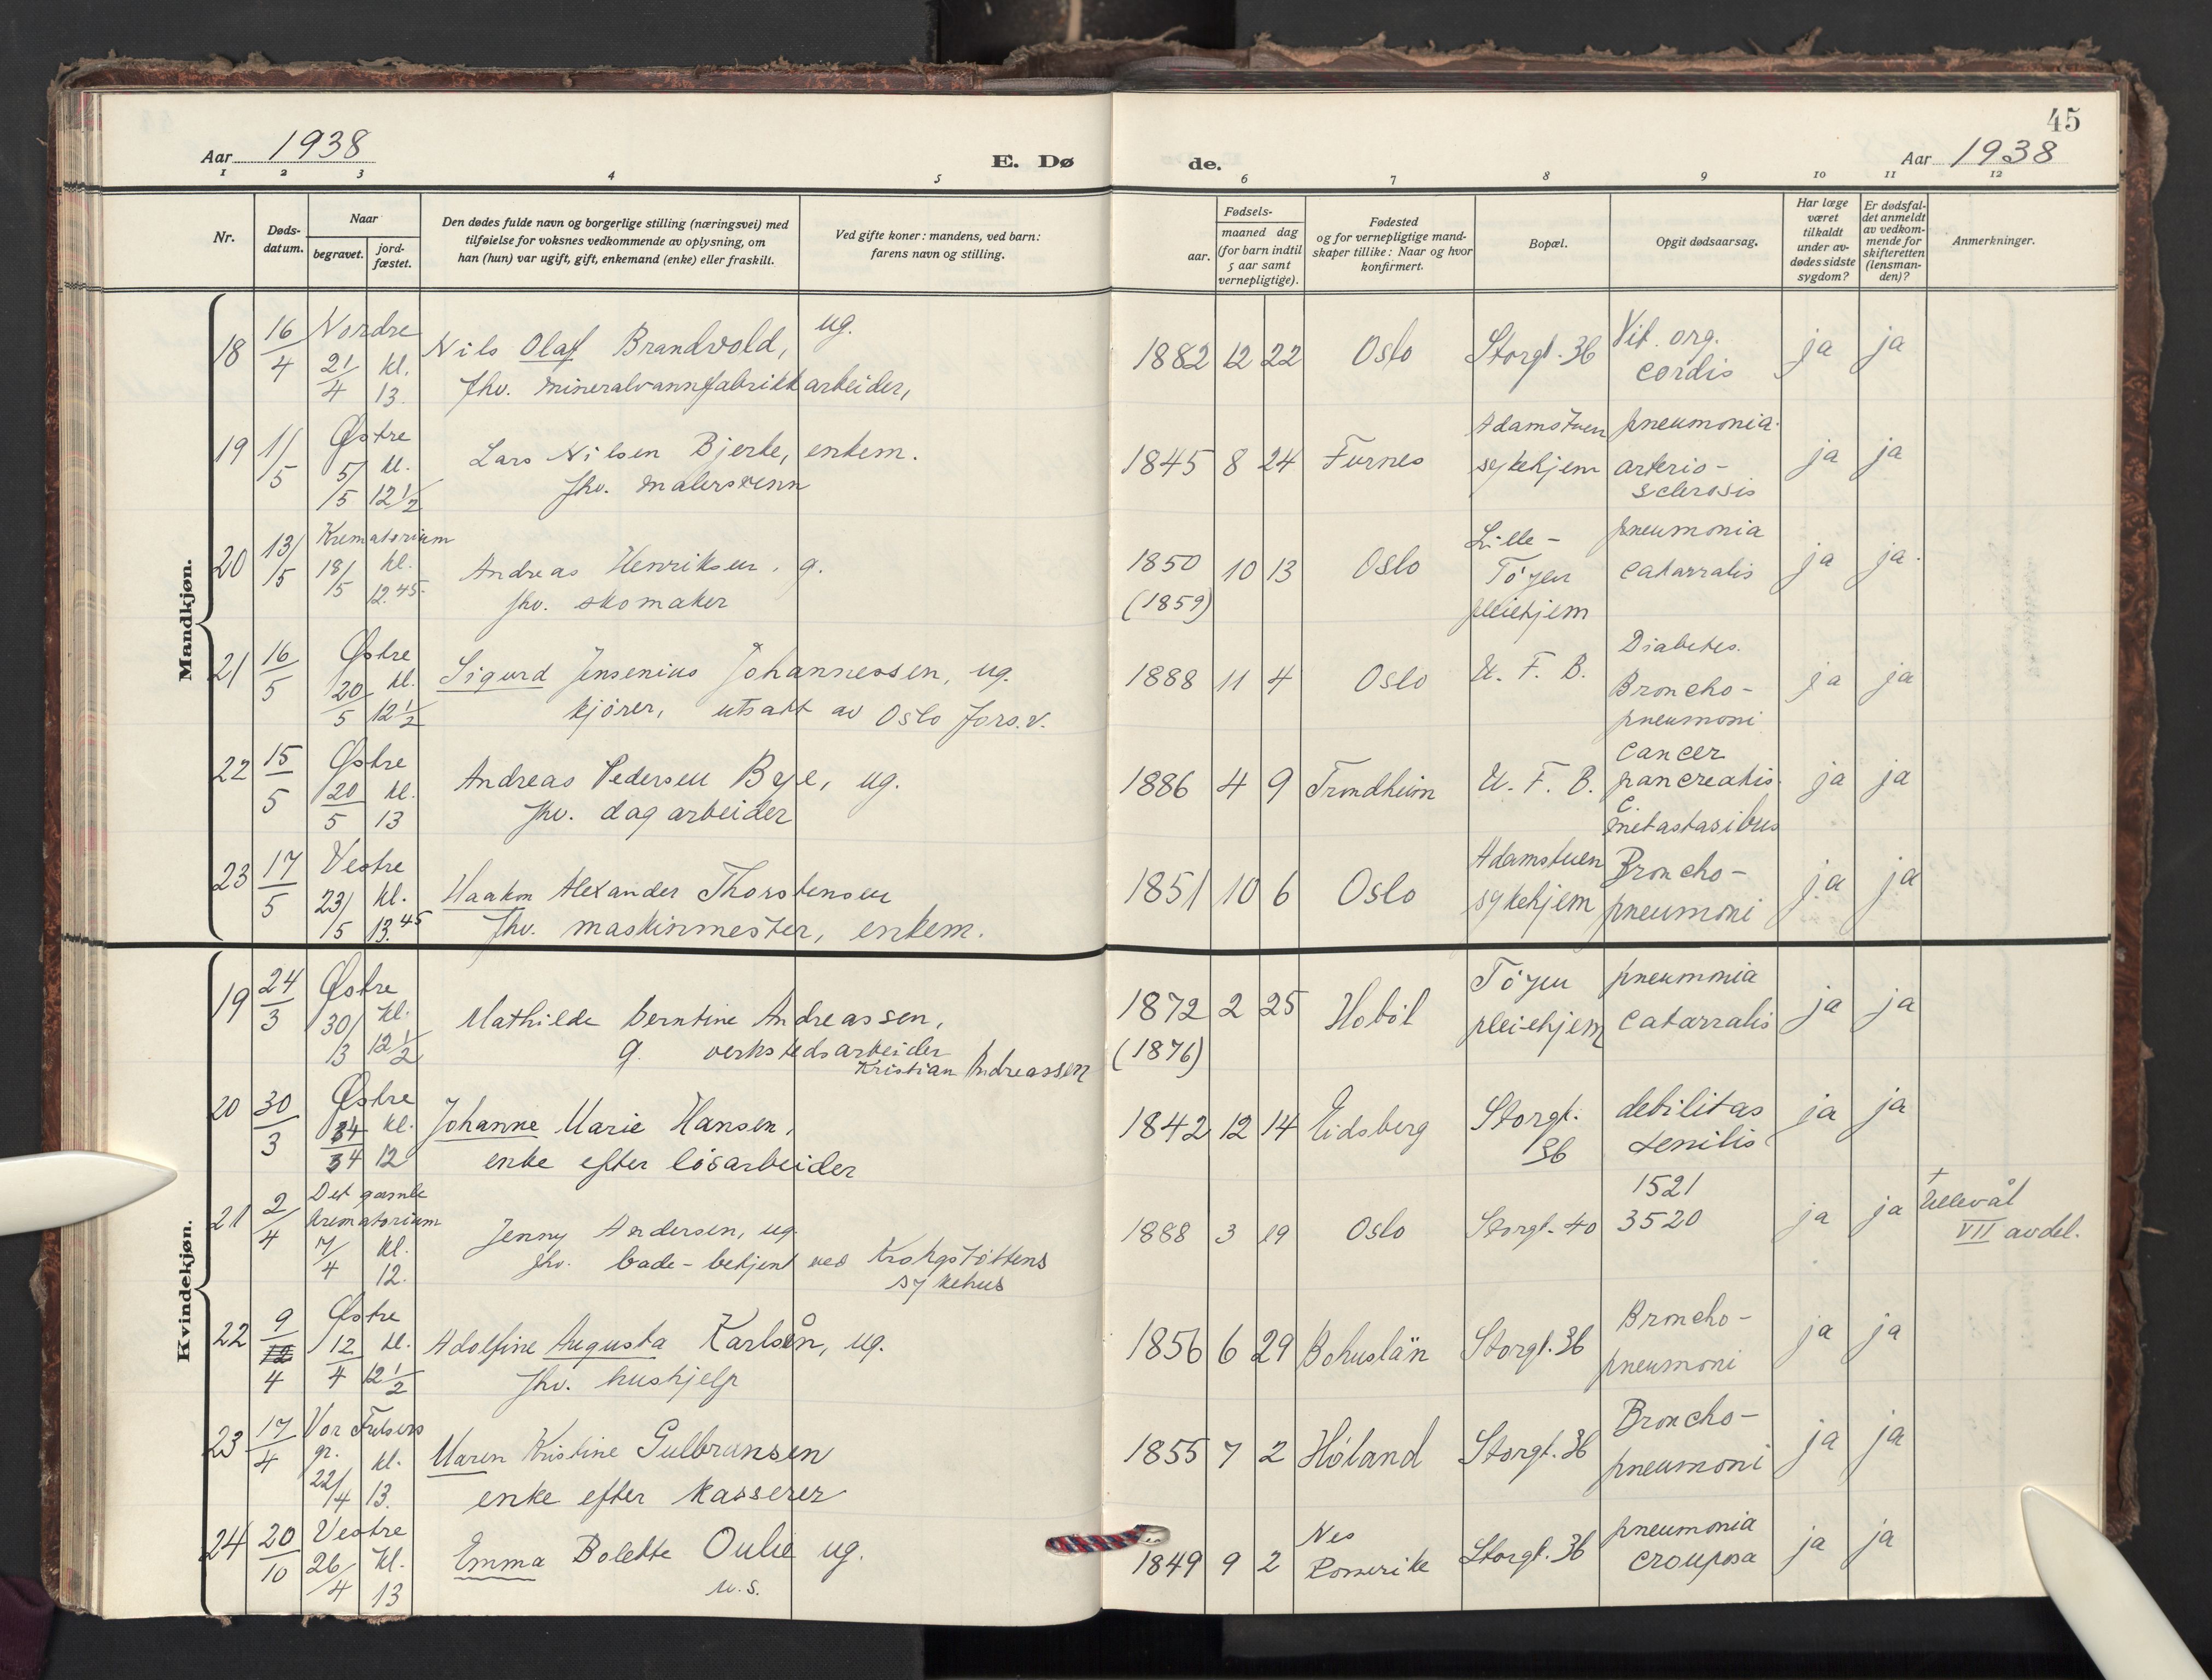 45
Aar 1938
E. Dø de.
Aar 1938
1 2 3 4 5 6 7 8 9 10 11 12
Nr.
Døds-
datum.
Naar
begravet.
jord-
fæstet.
Den dødes fulde navn og borgerlige stilling (næringsvei) med
tilføielse for voksnes vedkommende av oplysning, om
han (hun) var ugift, gift, enkemand (enke) eller fraskilt.
Ved gifte koner: mandens, ved barn:
farens navn og stilling.
Fødsels-
aar.
maaned dag
(for barn indtil
5 aar samt
vernepligtige).
Fødested
og for vernepligtige mand-
skaper tillike: Naar og hvor
konfirmert.
Bopæl.
Opgit dødsaarsag.
Har læge
været
tilkaldt
under av-
dødes sidste
sygdom?
Er dødsfal-
det anmeldt
av vedkom-
mende for
skifteretten
(lensman-
den)?
Anmerkninger.
Mandkjøn.
18 16/4 Nordre 21/4 kl. 13
Nils Olaf Brandvold, ug.
fhv. mineralvannfabrikkarbeider,
1882 12 22 Oslo Storgt. 36
Vit. org.
cordis
ja ja
19 1/5 Østre 5/5 kl. 12 1/2
Lars Nilsen Bjerke, enkem.
fhv. malersvenn
1845 8 24 Furnes
Adamstuen
sykehjem
pneumonia.
arterio-
sclerosis
ja ja
20 13/5 Krematorium 18/5 kl. 12.45
Andreas Henriksen, g.
fhv. skomaker
1850
(1859)
10 13 Oslo
Lille-
Töyen
pleiehjem
pneumonia
catarralis
ja ja.
21 16/5 Østre 20/5 kl. 12 1/2
Sigurd Jensenius Johannessen, ug.
kjører, utsatt av Oslo fors.v.
1888 11 4 Oslo U. F. B.
Diabetes.
Broncho-
pneumoni
ja ja
22 15/5 Østre 20/5 kl. 13
Andreas Pedersen Bye, ug.
fhv. dagarbeider
1886 4 9 Trondheim U. F. B.
Cancer
pancreatis.
c.
metastasibus
ja ja
23 17/5 Vestre 23/5 kl. 13.45
Haakon Alexander Thorstensen
fhv. maskinmester, enkem.
1851 10 6 Oslo
Adamstuen
sykehjem
Broncho-
pneumoni
ja ja
Kvindekjøn.
19 24/3 Østre 30/3 kl. 12 1/2
Mathilde Berntine Andreassen,
g. verkstedsarbeider
Kristian Andreassen
1872
(1876)
2 25 Hobøl
Töyen
pleiehjem
pneumonia
catarralis
ja ja
20 30/3 Østre 4/4 kl. 12
Johanne Marie Hansen,
enke efter løsarbeider
1842 12 14 Eidsberg
Storgt.
36
debilitas
senilis
ja ja
21 2/4 Det gamle
krematorium
7/4 kl. 12.
Jenny Andersen, ug.
fhv. bade-betjent ved Krohgstøttens
sykehus
1888 3 19 Oslo Storgt. 40
1521
3520
ja ja
+
Ullevål
VII avdel.
22 9/4 Østre 12/4 kl. 12 1/2
Adolfine Augusta Karlsån, ug.
fhv. hushjelp
1856 6 29 Bohuslän Storgt. 36
Broncho-
pneumoni
ja ja
23 17/4 Vor Frelsers
gr. 22/4 kl. 13.
Maren Kristine Gulbransen
enke efter kasserer
1855 7 2 Høland Storgt. 36
Broncho-
pneumoni
ja ja
24 20/10 Vestre 26/4 kl. 13
Emma Bolette Oulie ug.
u.s.
1849 9 2
Nes
Romerike
Storgt. 36
pneumonia
crouposa
ja ja